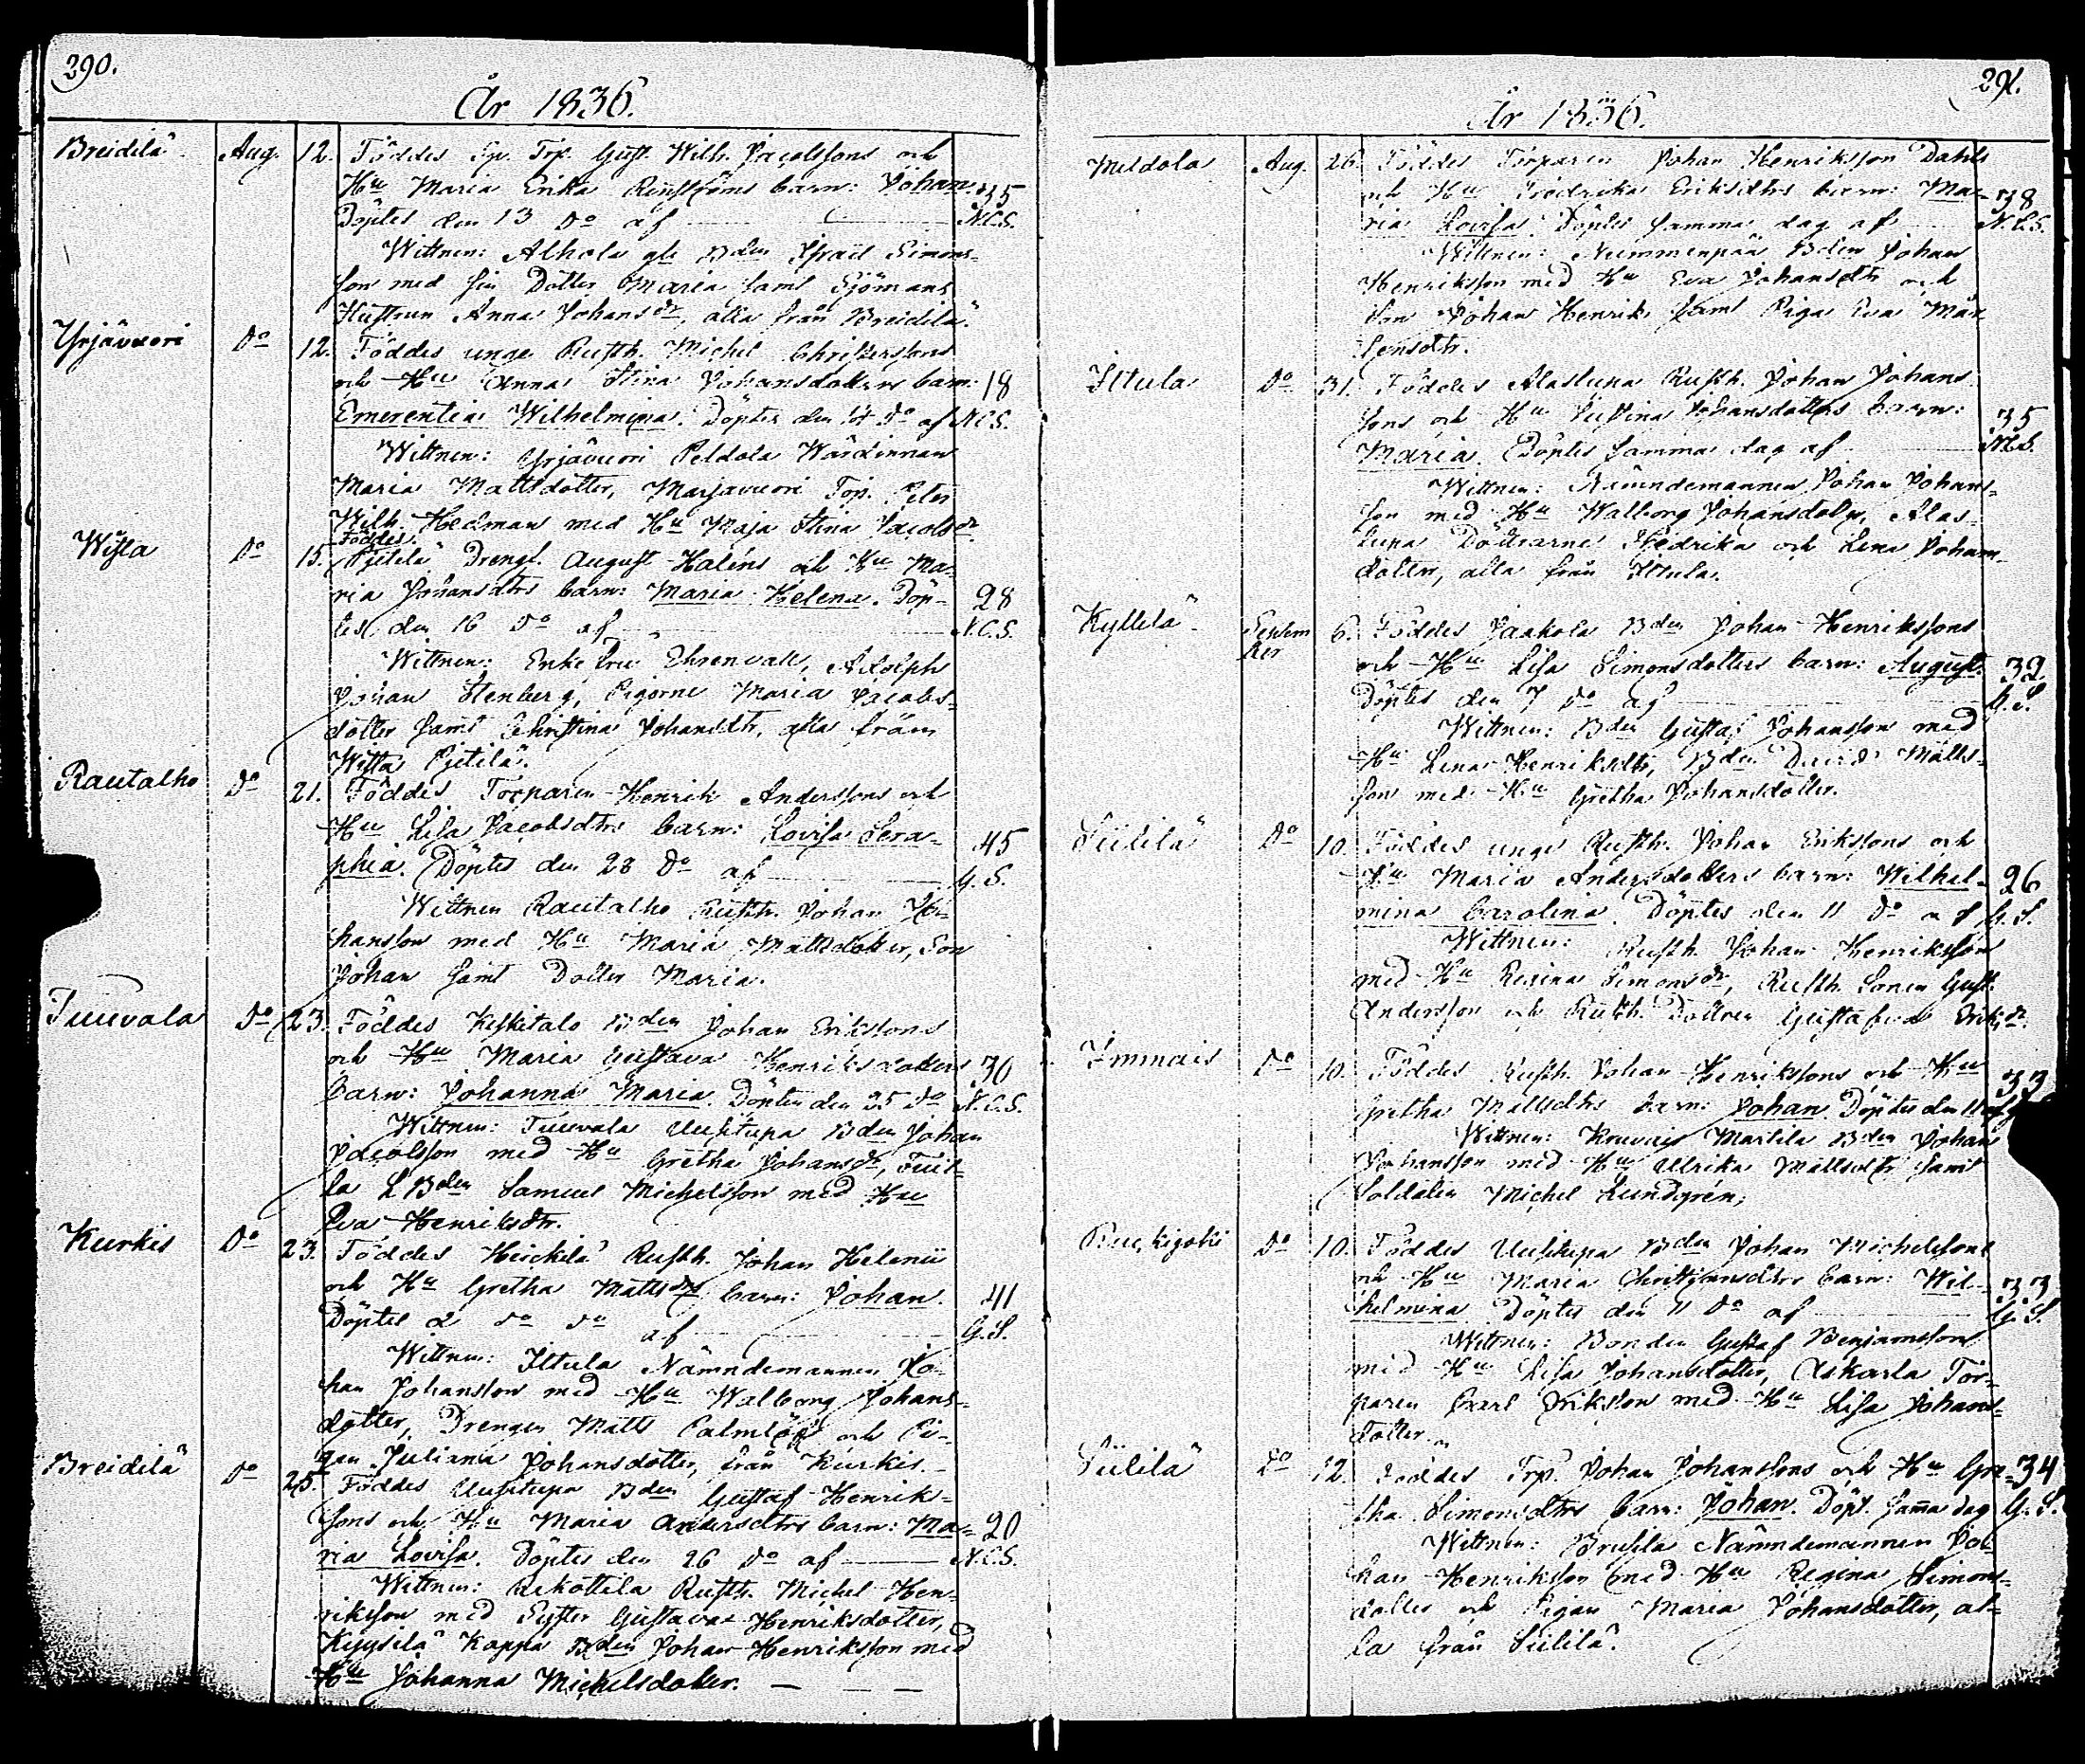 290.
År 1836.
Breidilä Aug. 12. Föddes Sp. Trp. Gust. Wilh. Jacobssons och
Hu Maria Erika Renströms barn: Johan. 35
Döptes den 13 do af N.C.S.
Wittnen: Alhola gle Bden Israel Simons-
son med sin Dotter Maria samt Sjömans
Hustrun Anna Johansdr, alla från Breidilä.
Yrjävuori do 12. Föddes unge Rusth. Michel Christerssons
och Hu Anna Stina Johansdotters barn: 18
Emerentia Wilhelmina. Döptes den 14 do af N.C.S.
Wittnen: Yrjävuori Peldola Wärdinnan
Maria Mattsdotter, Marjavuori Torp. Peter
Wilh. Hedman med Hu Maja Stina Jacobsdr.
Wista do 15. Föddes Pietilä Drengs. August Haléns och Hu Ma-
ria Johansdtrs barn: Maria Helena. Döp- 28
tes den 16 do af N.C.S.
Wittnen: Enke Fru Ehrenvall, Adolph
Johan Stenberg, Pigorne Maria Jacobs-
dotter samt Christina Johansdtr, alla från
Wista Pietilä.
Rautalho do 21. Föddes Torparen Henrik Anderssons och
Hu Lisa Jacobsdtrs barn: Lovisa Sera- 45
phia. Döptes den 28 do af G.S.
Wittnen Rautalho Rusth. Johan Jo-
hansson med Hu Maria Mattsdotter, Son
Johan samt Dotter Maria.
Tuuvala do 23. Föddes Keskitalo Bden Johan Erikssons
och Hu Maria Gustava Henriksdotters 30
barn: Johanna Maria. Döptes den 25 do N.C.S.
Wittnen: Tuuvala Uusitupa Bden Johan
Jacobsson med Hu Gretha Johansdr, Tuit-
la L Bden Samuel Michelsson med Hu
Eva Henriksdtr.
Kurkis do 23. Föddes Heickilä Rusth. Johan Helenii
och Hu Gretha Mattsdrs barn: Johan. 41
Döptes d do do af G.S.
Wittnen: Iltula Nämndemannen Jo-
han Johansson med Hu Walborg Johans-
dotter, Drengen Matts Palmlöf och Pi-
gan Juliana Johansdotter, från Kurkis.
Breidilä do 25. Föddes Uusitupa Bden Gustaf Henriks-
sons och Hu Maria Andersdtrs barn: Ma- 20
ria Lovisa. Döptes den 26 do af N.C.S.
Wittnen: Rekottila Rusth. Michel Hen-
riksson med Syster Gustava Henriksdotter,
Kyysilä Kappa Bden Johan Henriksson med
Hu Johanna Michelsdotter.
291.
År 1836.
Meldola Aug. 26. Föddes Torparen Johan Henriksson Dahls
och Hu Fredrika Eriksdtrs barn: Ma- 38
ria Lovisa. Döptes samma dag af N.C.S.
Wittnen: Nummenpää Bden Johan
Henriksson med Hu Eva Johansdtr och
Son Johan Henrik samt Piga Eva Mår-
tensdtr.
Iltula do 31. Föddes Alastupa Rusth. Johan Johans-
sons och Hu Justina Johansdotters barn: 35
Maria. Döptes samma dag af N.C.S.
Wittnen: Nämndemannen Johan Johans-
son med Hu Walborg Johansdotter, Alas-
tupa Döttrarne Hedvika och Lena Johans-
dotter, alla från Iltula.
Kyllilä Septem
ber 6. Föddes Jaakola Bden Johan Henrikssons
och Hu Lisa Simonsdotters barn: August. 32
Döptes den 7 do af G.S.
Wittnen: Bden Gustaf Johansson med
Hu Lena Henriksdtr, Bden David Matts-
son med Hu Gretha Johansdotter.
Siililä do 10. Föddes unge Rusth. Johan Erikssons och
Hu Maria Andersdotters barn: Wilhel- 26
mina Carolina. Döptes den 11 do af G.S.
Wittnen: Rusth. Johan Henriksson
med Hu Regina Simonsdr, Rusth. Sonen Gust.
Andersson och Rusth. Dottren Gustafva Eriksdr.
Immais do 10. Föddes Rusth. Johan Henrikssons och Hu 33
Gretha Mattsdtrs barn: Johan. Döptes den 11 af
Wittnen: Marlila Bden Johan
Johansson med Hu Ulrika Mattsdtr samt
Soldaten Michel Lundgrén,
do 10. Föddes Uusitupa Bden Johan Michelssons
och Hu Maria Christjansdtrs barn: Wil- 33
helmina. Döptes den 11 do af G.S.
Wittnen: Bonden Gustaf Benjamsson
med Hu Lisa Johansdotter, Askarla Tor-
paren Carl Eriksson med Hu Lisa Johans-
dotter.
Siililä do 12. Föddes Trp. Johan Johanssons och Hu Gre- 34
tha Simonsdtrs barn: Johan. Döpt. samma dag G.S.
Wittnen: Brusila Nämndemannen Jo-
han Henriksson med Hu Regina Simons-
dotter och Pigan Maria Johansdotter, al-
la från Siililä.